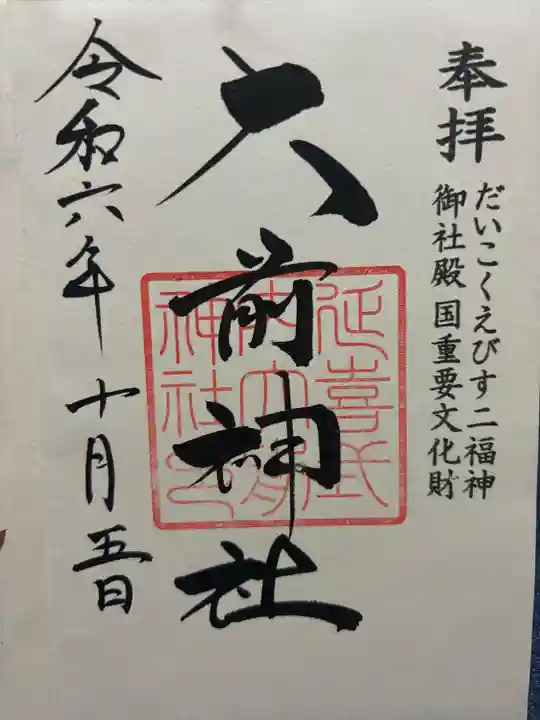 奉拝
だいこくえびす二福神
御社殿国重要文化財
大前神社
延喜式
内大前
神社之
令和六年十月五日